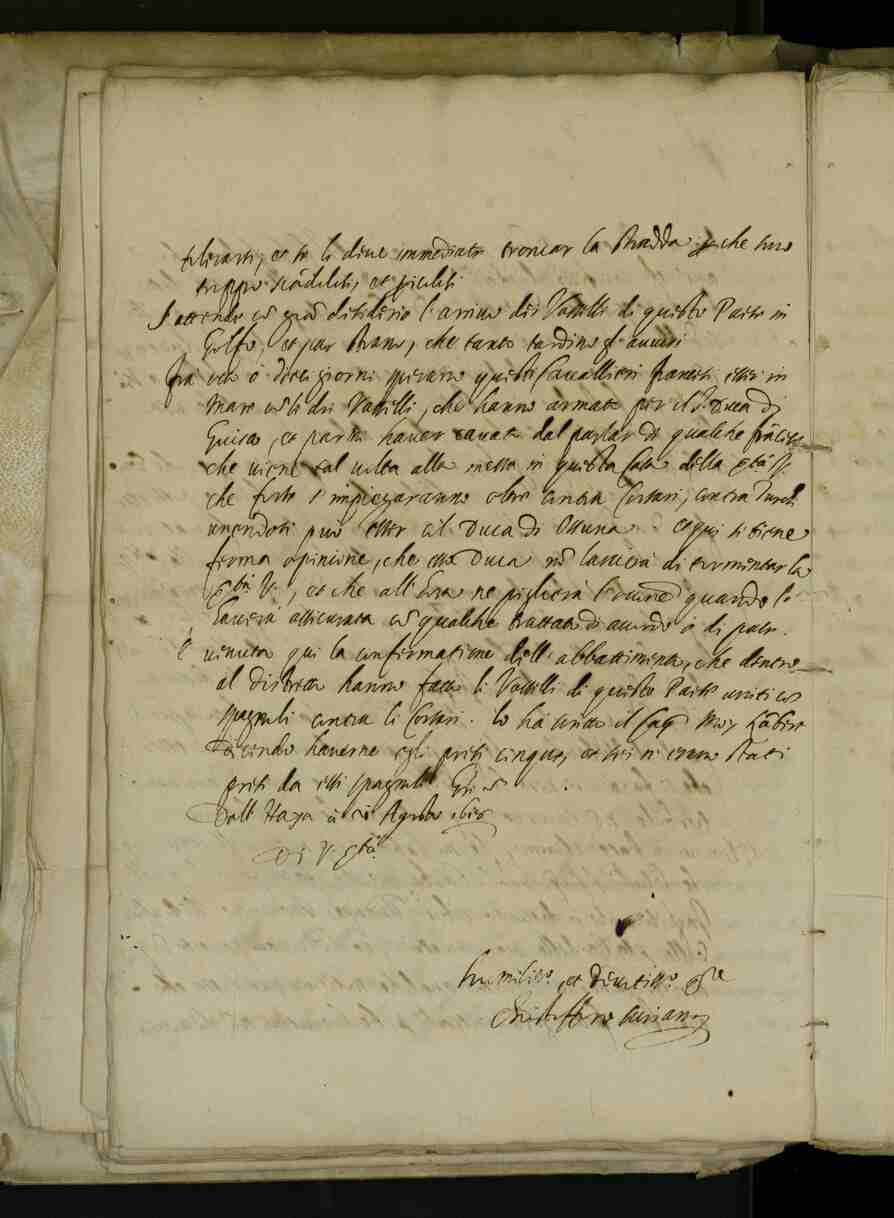 et se li deve immediate troncar la stradda perche sono
troppo
S'attende con gran desiderio l'arrivo dei Vasselli di questo Paese in
Golfo, et par strano, che tanto tardino gl'avvisi
Frà otto ò dieci giorni sperano questi Cavallieri francesi esser in
mare con li dui Vasselli, che hanno armati per il Sr Duca di
Guisa, et parmi haver cavato dal parlar di qualche francese
che viene tal volta alla messa in questa Casa della Stà V.
che forse s'impiegaranno oltre contra Corsari, contra Turchi
unendosi può esser al Duca di Ossuna et qui si tiene
ferma opinione, che esso Duca non lascierà di tormentar la
Stà V., et che all'hora ne piglierà l'occasione quando l'
haverà assicurata con qualche trattato di accordo ò di pace.
È venuta qui la confirmatione dell'abbattimento, che dentro
al distretto hanno fatto li Vasselli di questo Paese uniti con
spagnoli contra li Corsari. lo hà scritto il Capo
dicendo haverne egli presi cinque, et sei n'erano stati
presi da essi spagnoli. Gratie etc.
Dall'Haya à Agosto
Di V. Stà
Humilissimo, et Devotissimo servitore
Christofforo Suriano